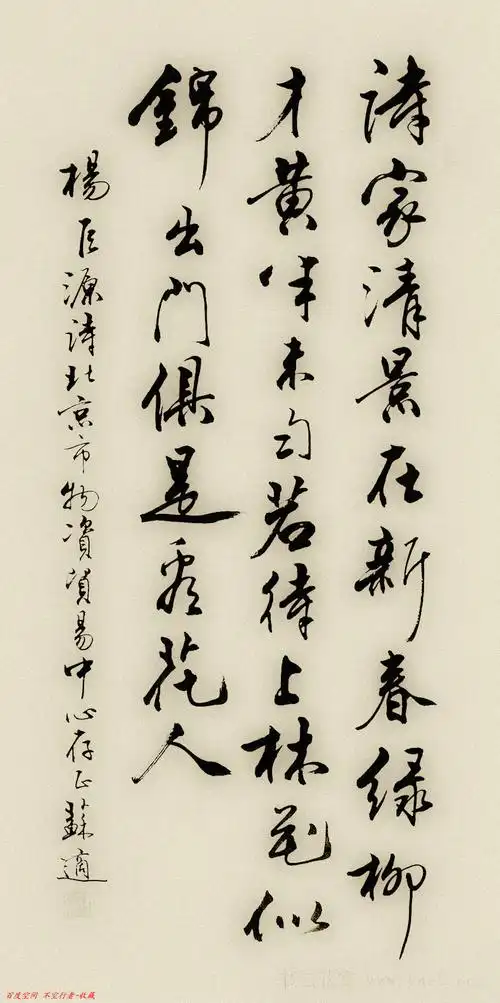 詩家清景在新春綠柳
才黃半未勻若待上林花似
錦出門俱是看花人
楊巨源詩北京市物資貿易中心存正蘇適
百度空间 不空行者-收藏